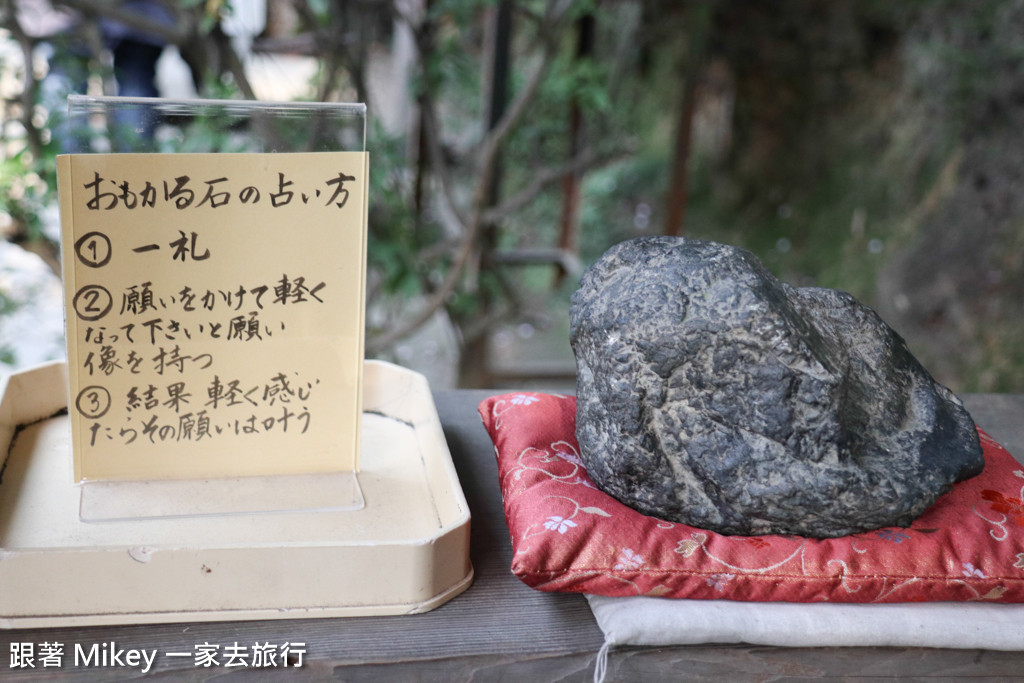 おもかる石の占い方
① 一礼
② 願いをかけて軽く
なって下さいと願い
像を持つ
③ 結果 軽く感じ
たらその願いは叶う
跟著 Mikey 一家去旅行